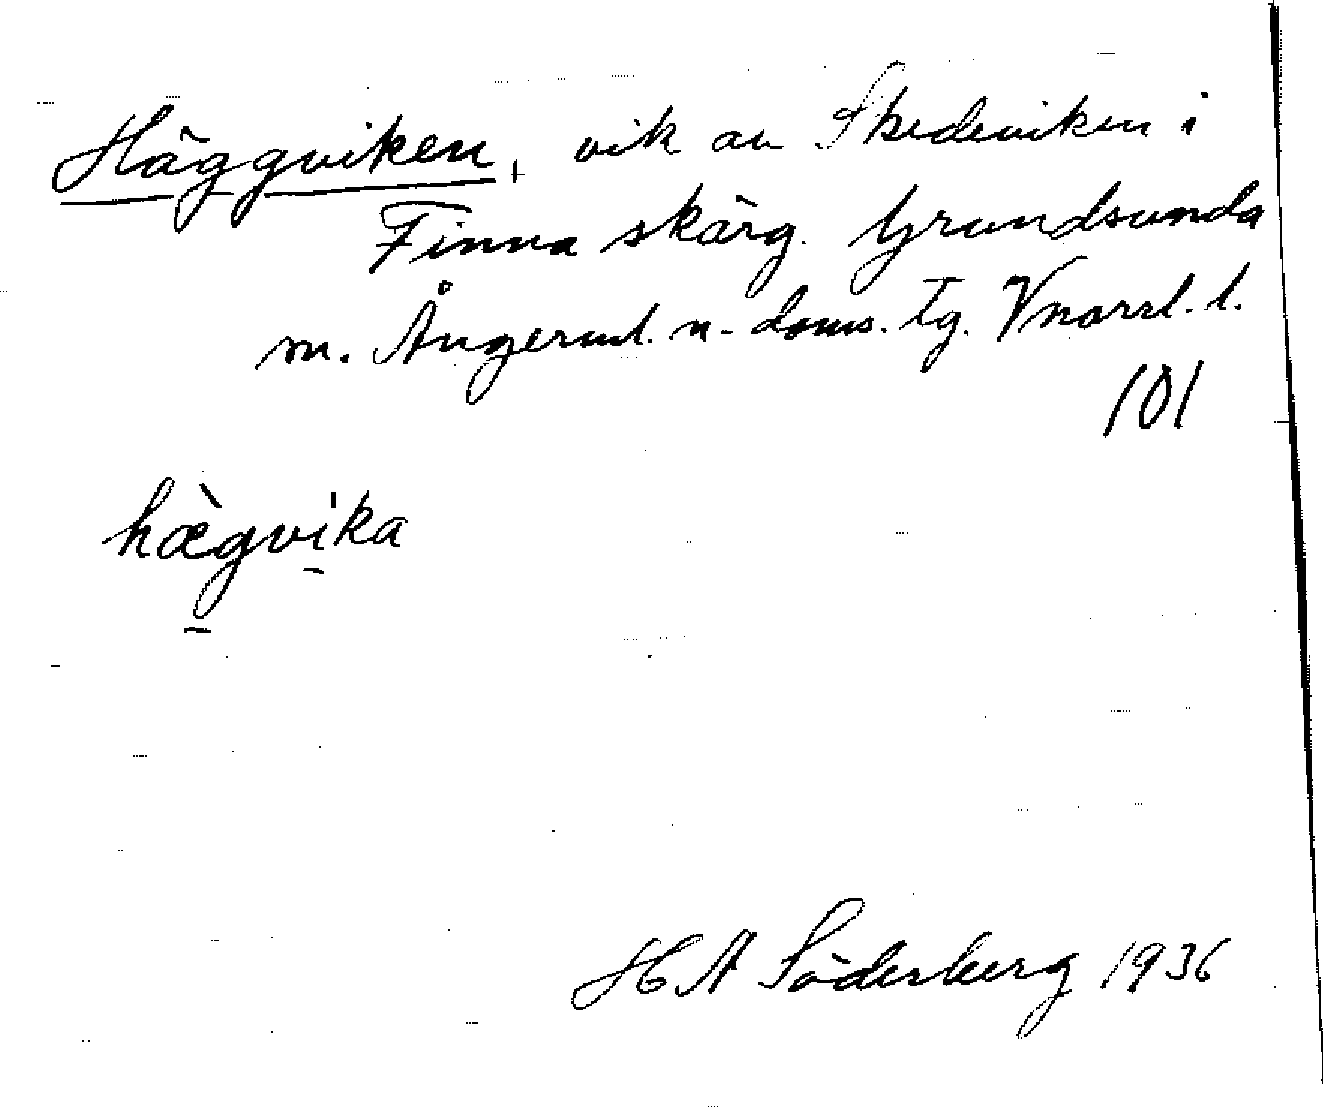 Häggviken, vik av Skedeviken i
Finna skärg. Grundsunda
m. Ångerml. n. doms. tg. Vnorrl. l.
101
hægvika
H A Söderberg 1936